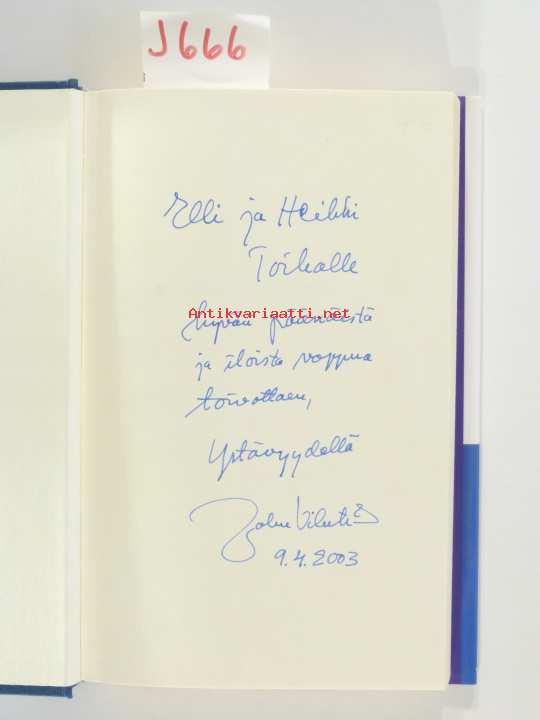 J666
Elli ja Heikki
Toikalle
Antikvariaatti.net
hyvää pääsiäistä
ja iloista vappua
toivottaen,
Ystävyydellä
9.4.2003